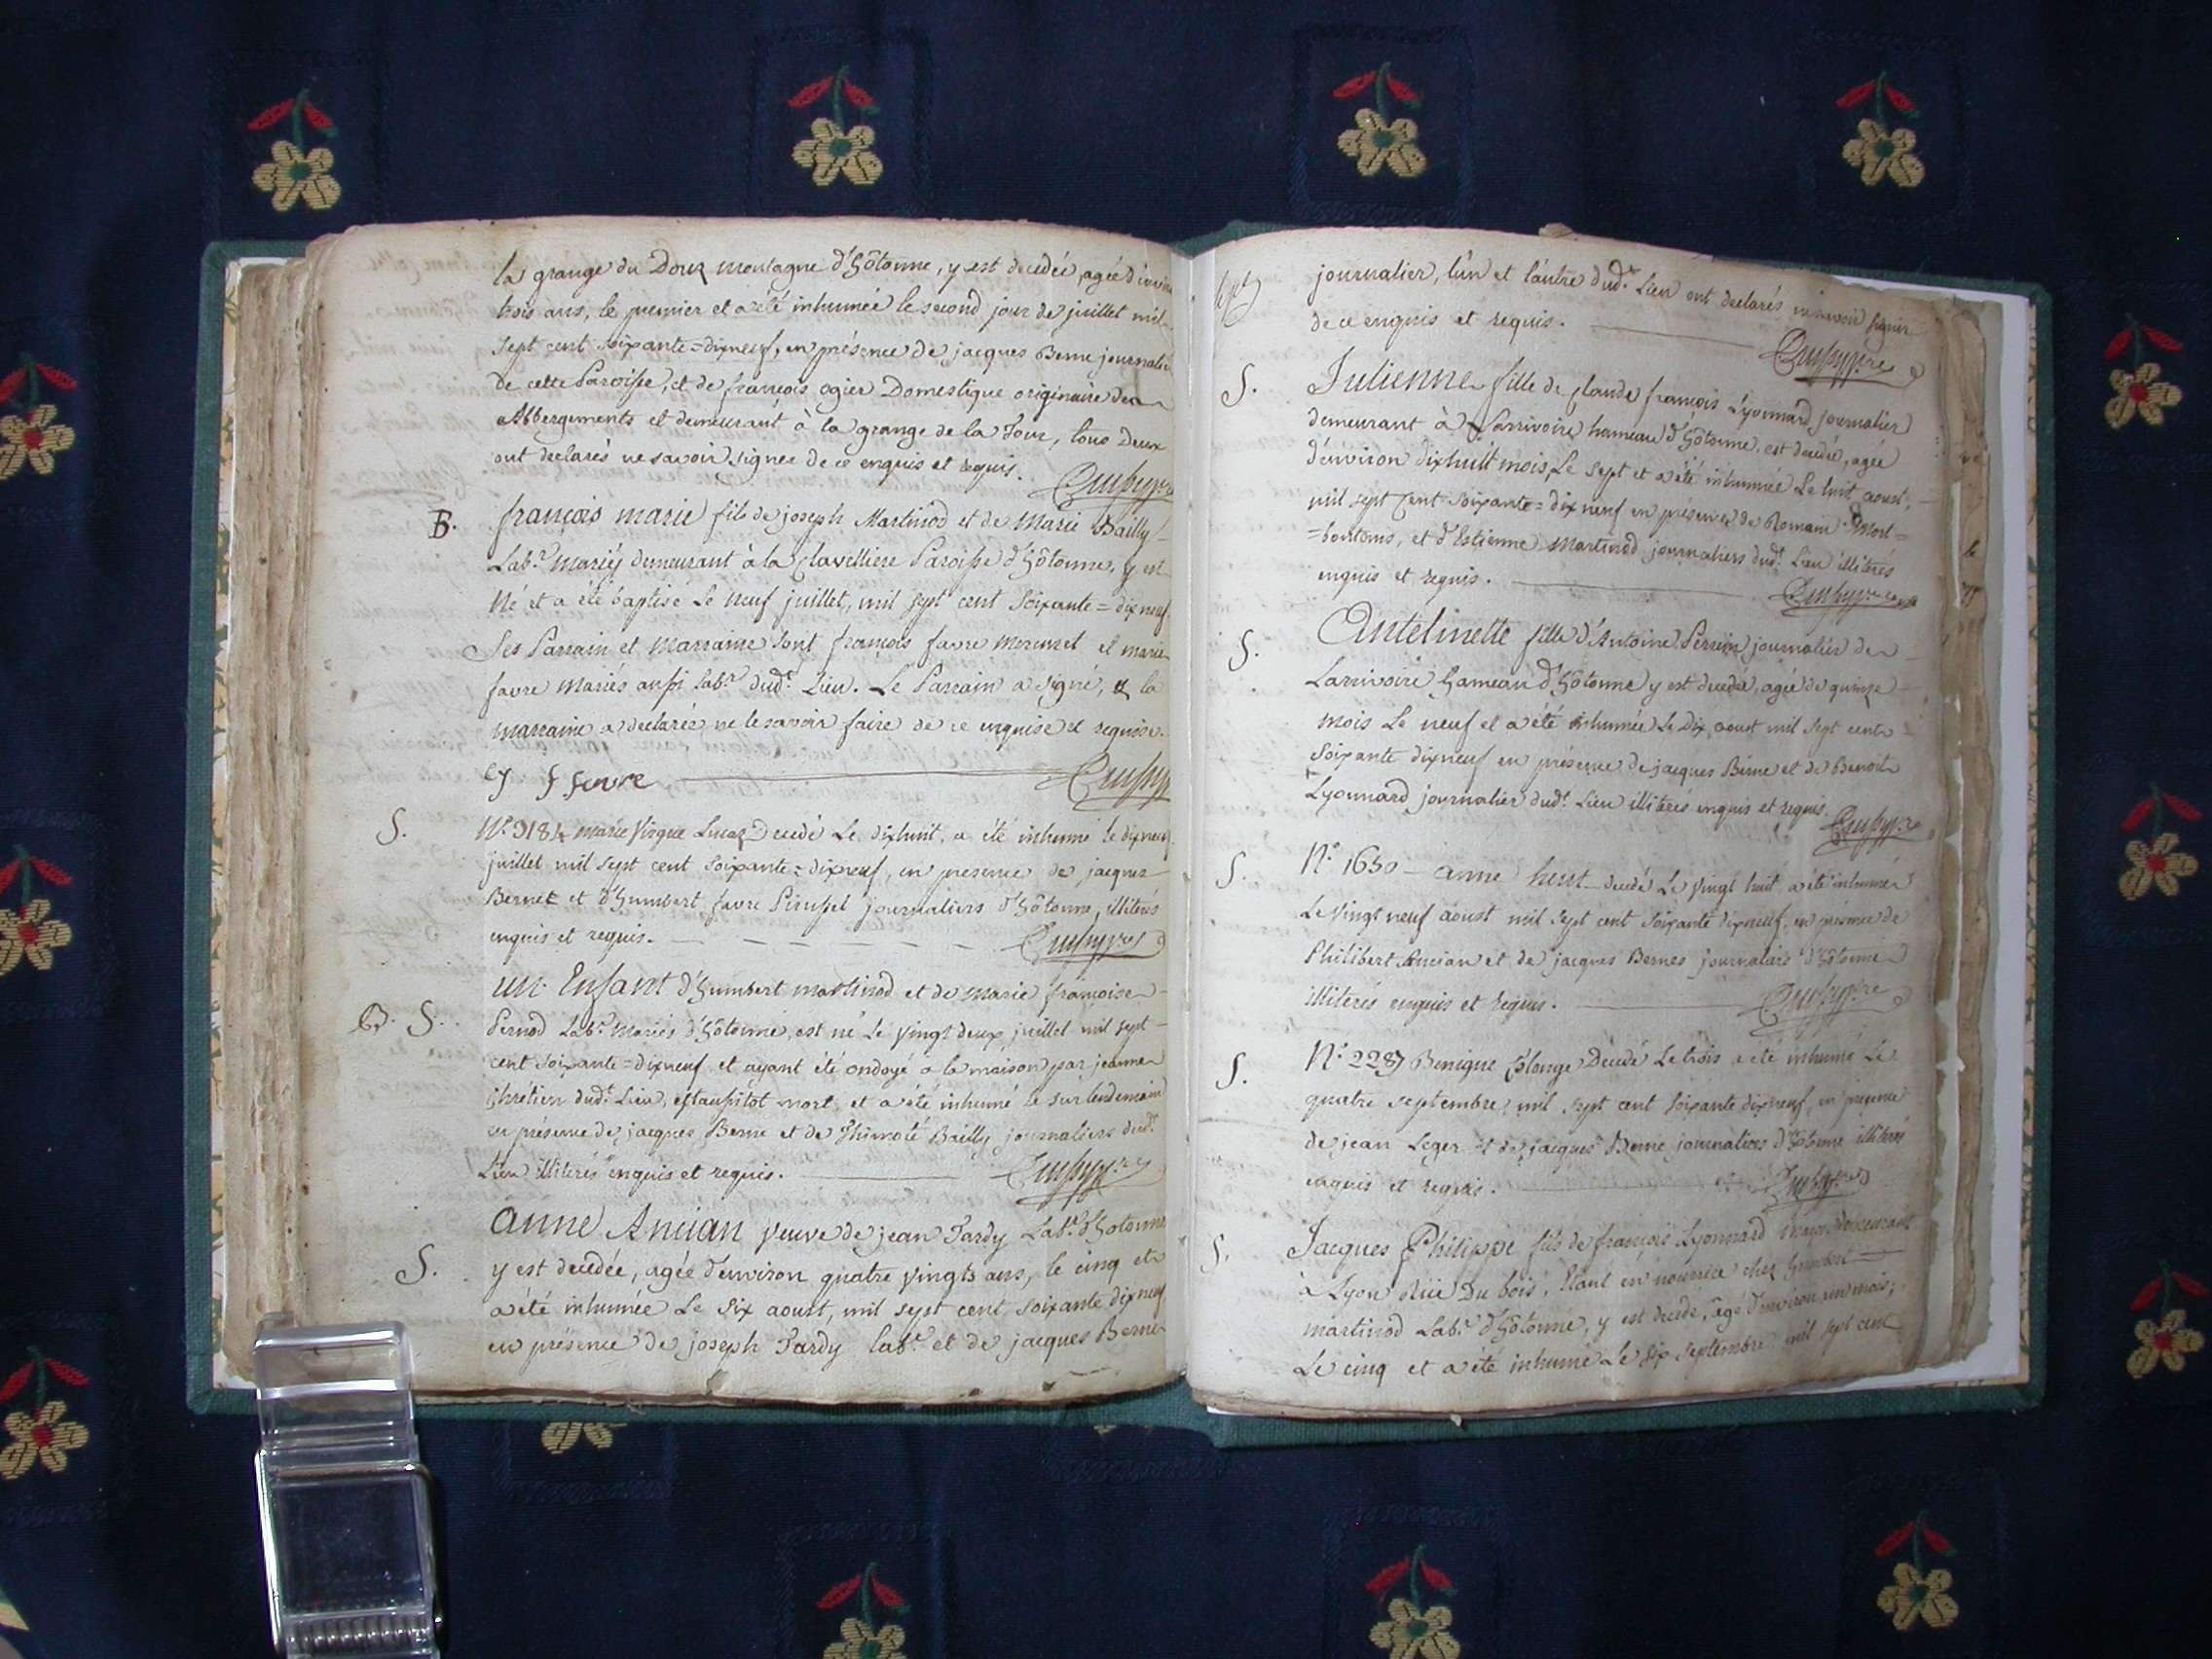 la grange du Doux montagne d'hôtonne, y est decedée, agée d'environ
trois ans, le premier et a été inhumée le second jour de juillet mil
sept cent soixante=dixneuf, en présence de jacques Berne journalier
de cette Paroisse, et de françois ogier Domestique originaire des
Abbergements et demeurant à la grange de la Tour, tous deux
ont declarés ne savoir signer de ce enquis et requis.
B. françois marie fils de joseph Martinod et de Marie Bailly
Lab.r Mariés demeurant à la Clavelliere Paroisse d'hôtonne, y est
Né et a été baptisé Le Neuf juillet, mil sept cent Soixante=dixneuf.
Ses Parrain et Marraine sont françois favre mermet et marie
favre Mariés aussi Lab.r dud.t Lieu. Le Parrain a signé, et la
marraine a declarée ne le savoir faire de ce enquise et requise.
f favre
S. N.° 3184 marie Virgue Lucas Decedé Le dixhuit, a été inhumé le dixneuf
juillet mil sept cent soixante=dixneuf, en presence de jacques
Bernet et d'humbert favre journaliers d'hôtonne, illiterés
enquis et requis.
B. S. un Enfant d'humbert martinod et de Marie françoise
Pernod Lab.r Mariés d'hôtonne, est né Le vingt deux juillet mil sept
cent soixante=dixneuf et ayant été ondoyé a la maison par jeanne
Chrétien dud.t Lieu, est aussitot mort et a été inhumé le surlendemain
en présence de jacques Berne et de Thimoté Bailly journaliers dud.t
Lieu illiterés enquis et requis.
S. anne Ancian veuve de jean Tardy Lab.r d'hotonne
y est decedée, agée d'environ quatre vingts ans, le cinq et
a été inhumée Le Six aoust, mil sept cent soixante dixneuf
en présence de joseph Tardy lab.r et de jacques Berne
journalier, l'un et l'autre dud.t Lieu ont declarés ne savoir signer
de ce enquis et requis.
S. Julienne fille de claude françois Lyonnard journalier
demeurant à Larrivoire hameau d'hôtonne, est decedée, agée
d'environ dixhuit mois, Le sept et a été inhumée Le huit aoust,
mil sept cent soixante=dixneuf en présence de Romain Mort=
=bontems, et d'Estienne Martinod journaliers dud.t Lieu illiterés
enquis et requis.
S. Antelinette fille d'Antoine Perrin journalier de
Larrivoire hameau d'hôtonne y est decedée, agée de quinze
mois Le neuf et a été inhumée Le Dix aoust mil sept cent
Soixante dixneuf en présence de jacques Berne et de Benoit
Lyonnard journalier dud.t Lieu illiterés enquis et requis.
S. N.° 1630 anne decedé Le vingt huit a été inhumée
Le vingt neuf aoust mil sept cent soixante dixneuf, en présence de
Philibert Ancian et de jacques Bernes journaliers d'hôtonne
illiterés enquis et requis.
S. N.° 2287 Benigne Decedé Le trois a été inhumé Le
quatre septembre, mil sept cent soixante dixneuf, en présence
de jean Leger et de jacques Berne journaliers d'hôtonne illiterés
enquis et requis.
S. Jacques Philippe fils de françois Lyonnard demeurant
à Lyon rüe Du bois, Etant en nourrice chez humbert
martinod Lab.r d'hôtonne, y est decedé, agé d'environ un mois,
Le cinq et a été inhumé Le six septembre mil sept cent